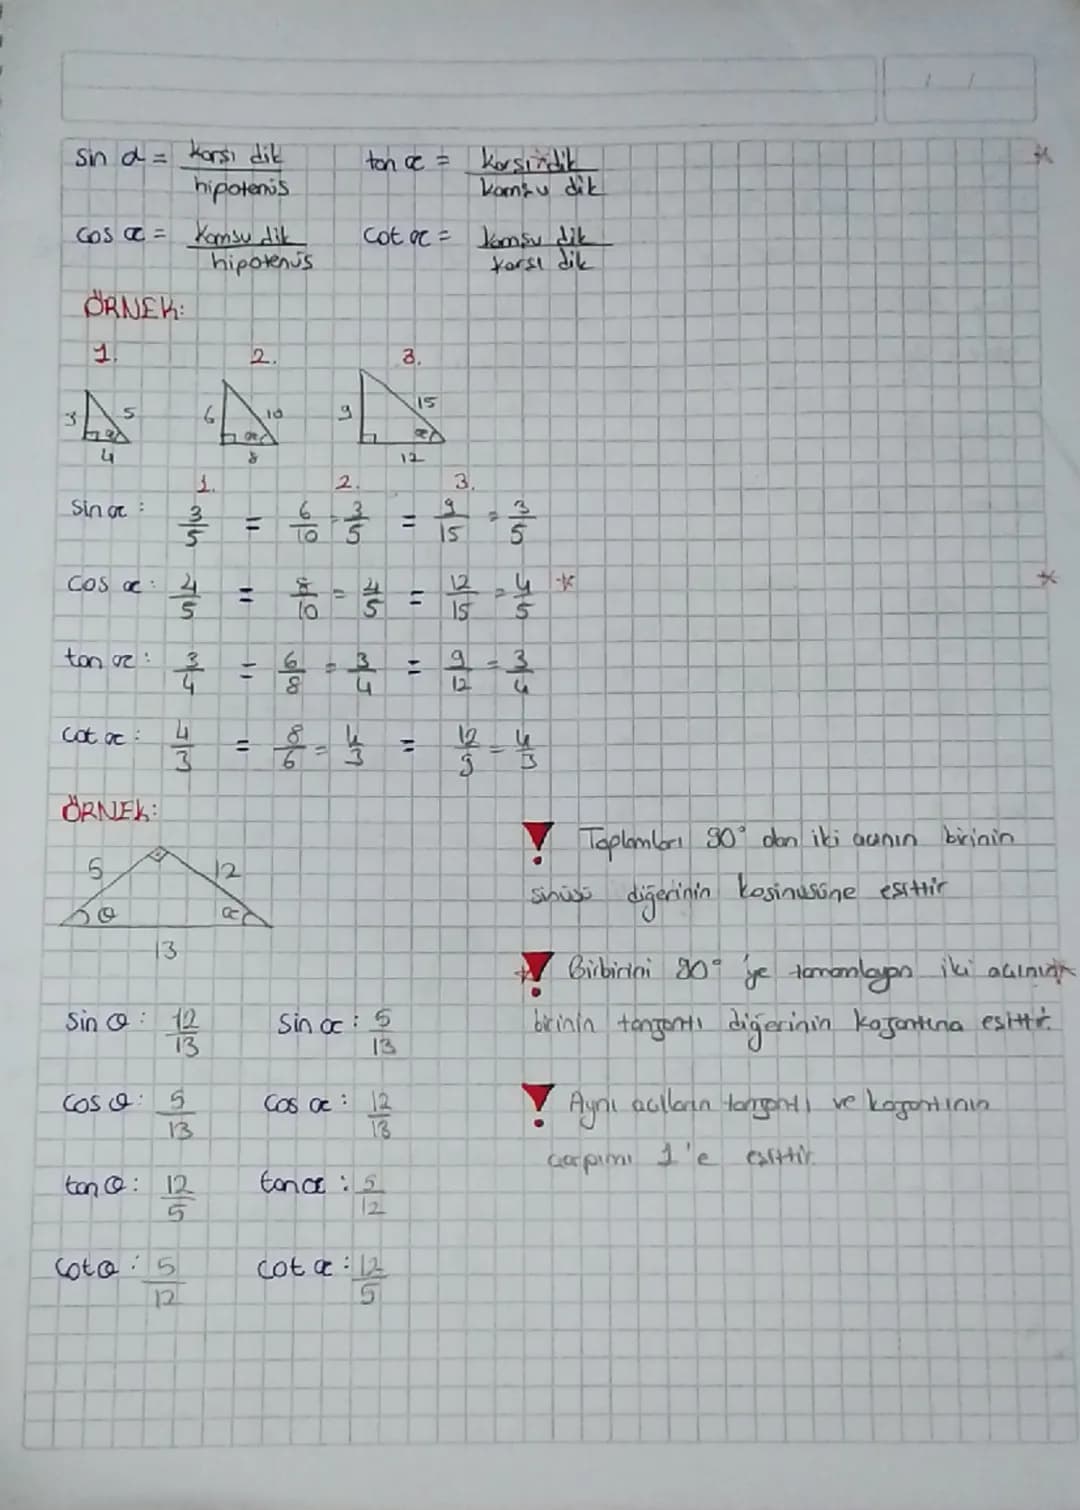 sin α = karşı dik / hipotenüs    tan α = karşı dik / komşu dik
cos α = komşu dik / hipotenüs    cot α = komşu dik / karşı dik
ÖRNEK:
1. 2. 3.
3 5 4
6 10 α 8
9 15 α 12
1. 2. 3.
sin α : 3/5 = 6/10 = 3/5 = 9/15 = 3/5
cos α : 4/5 = 8/10 = 4/5 = 12/15 = 4/5 *
tan α : 3/4 = 6/8 = 3/4 = 9/12 = 3/4
cot α : 4/3 = 8/6 = 4/3 = 12/9 = 4/3
ÖRNEK:
5 12
θ α
13
sin θ : 12/13    sin α : 5/13
cos θ : 5/13    cos α : 12/13
tan θ : 12/5    tan α : 5/12
cot θ : 5/12    cot α : 12/5
! Toplamları 90° olan iki açının birinin
sinüsü diğerinin kosinüsüne eşittir
! Birbirini 90° 'ye tamamlayan iki açının
birinin tanjantı diğerinin kojantına eşittir.
! Aynı açıların tanjantı ve kojantının
çarpımı 1'e eşittir.